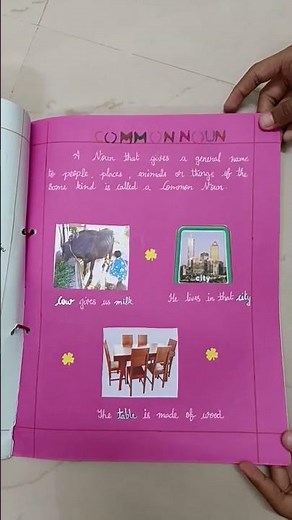 COMMON NOUN
A Noun that gives a general name
to people, places, animals or things of the
same kind is called a Common Noun.
city
Cow gives us milk.
He lives in that city
The table is made of wood